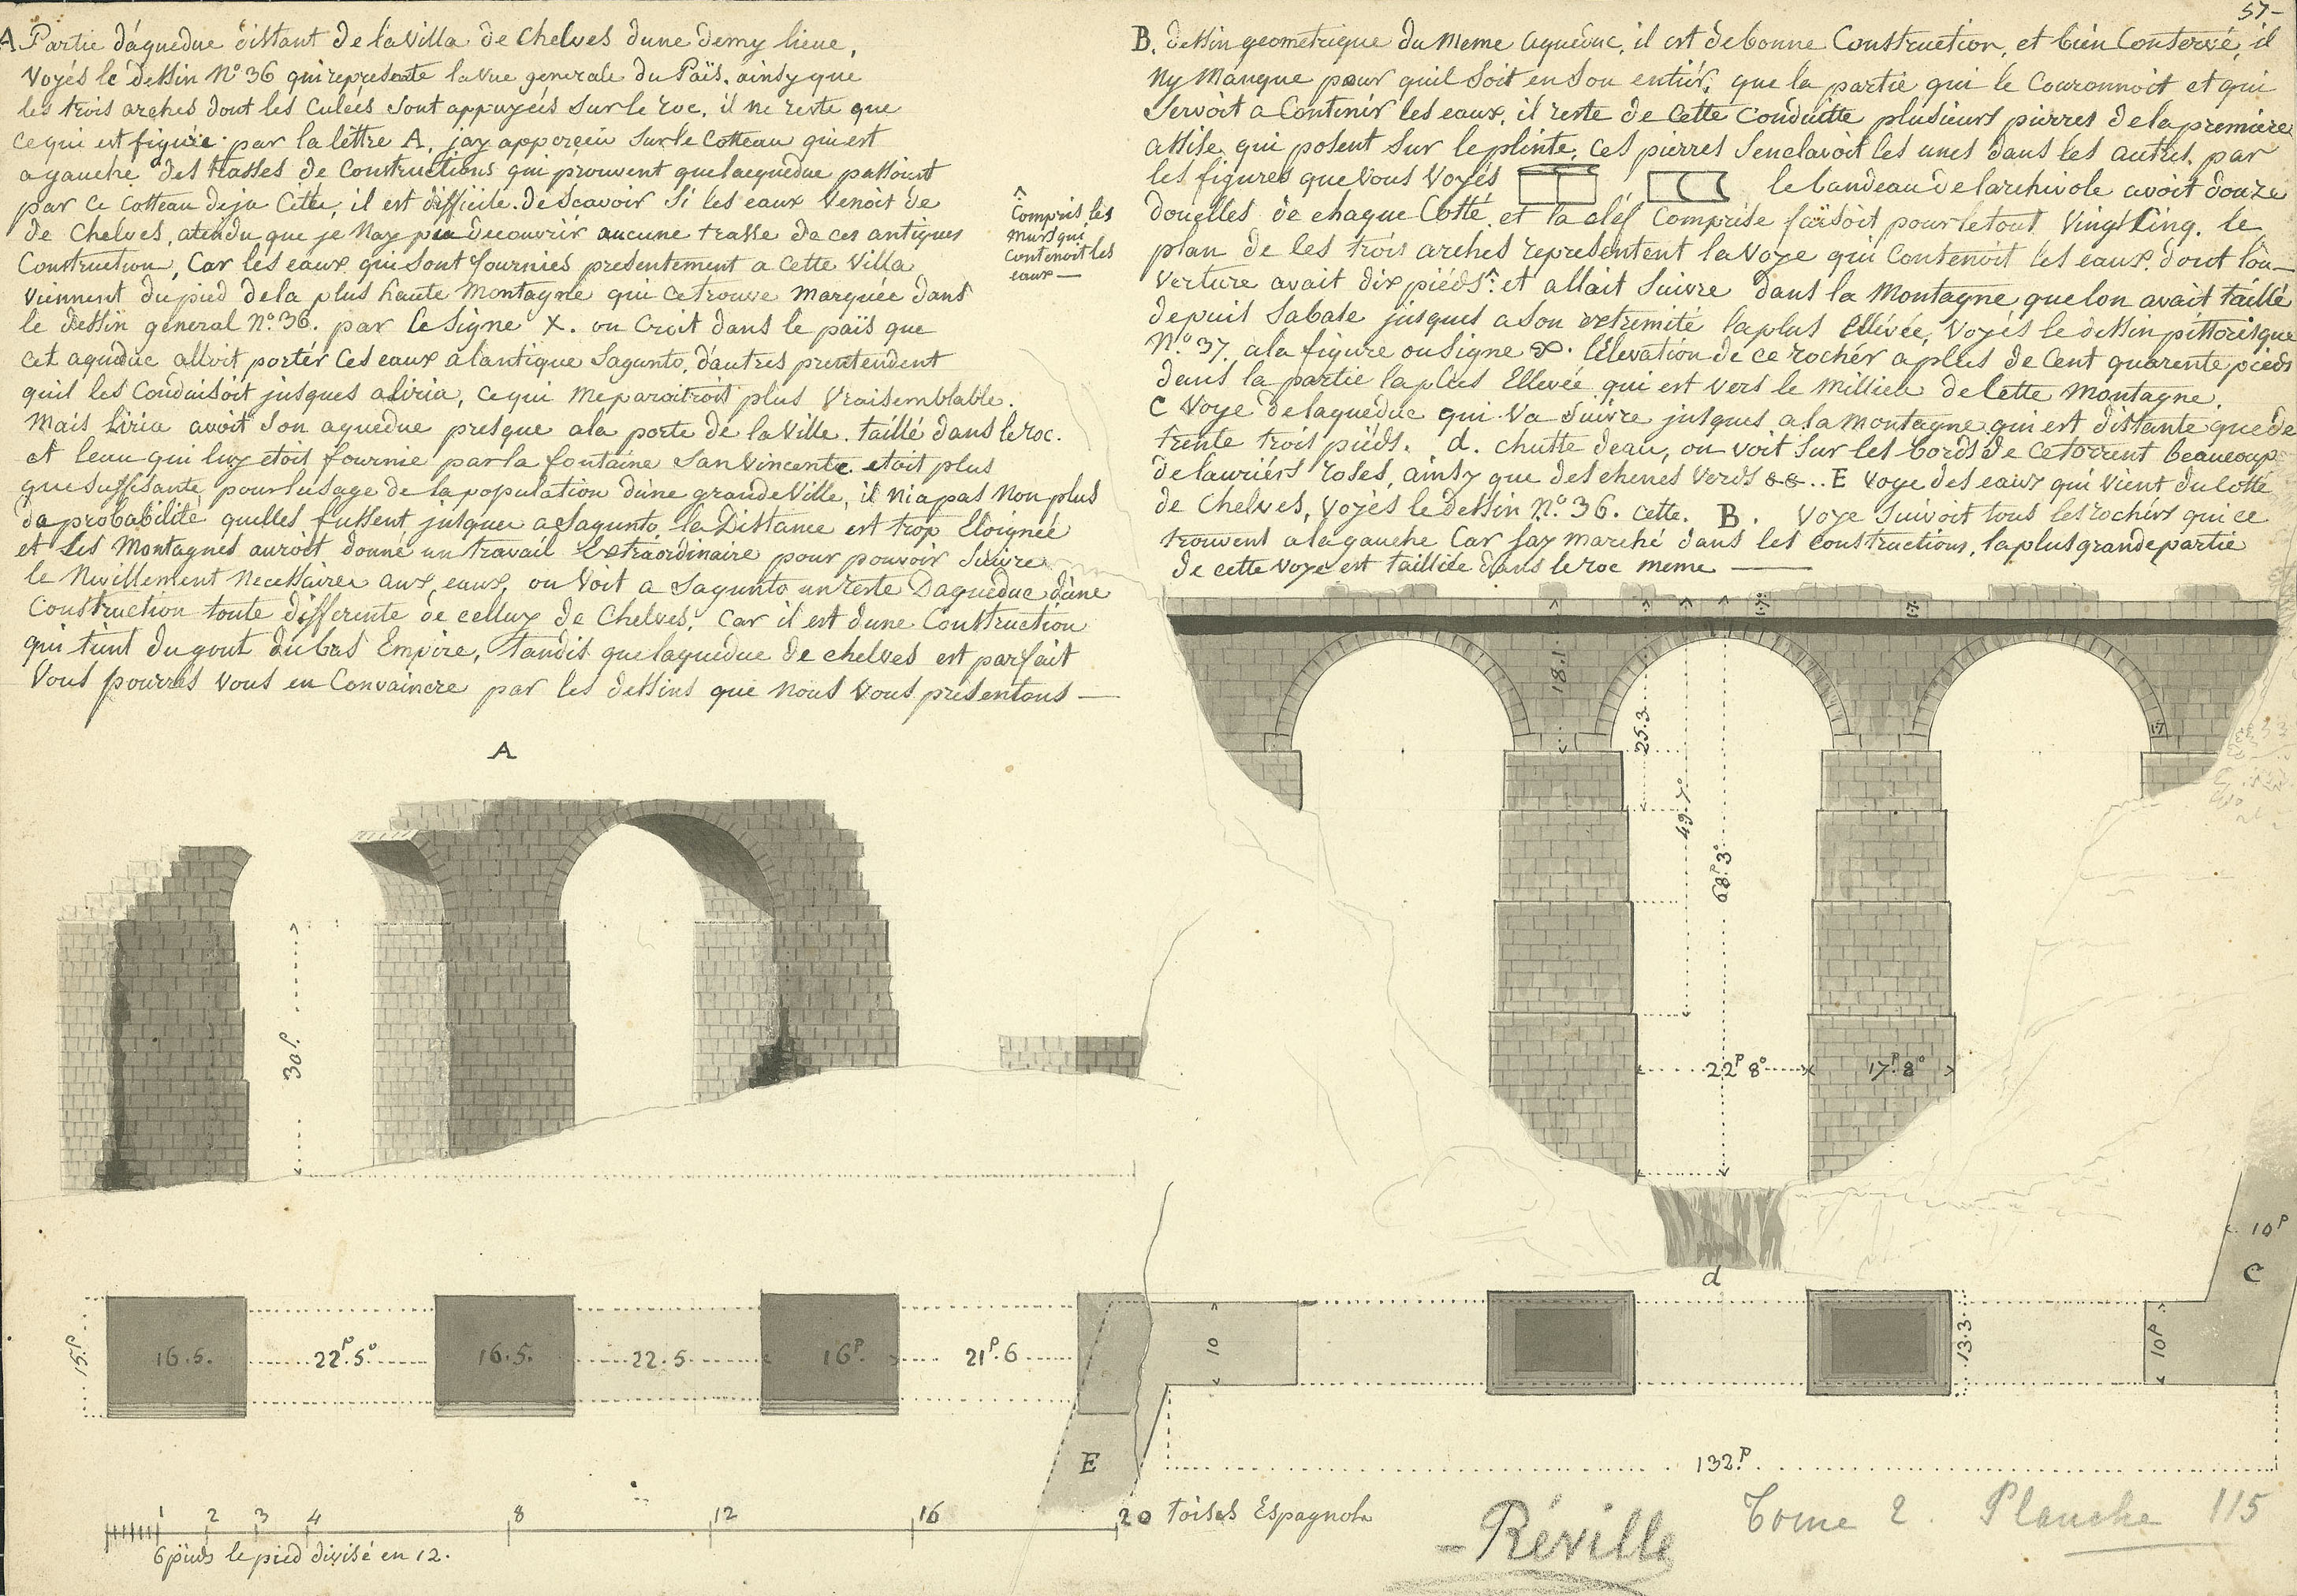 57-
A Partie d'aqueduc distant de la Villa de Chelves dune demy lieue,
Voyés le dessin N.º 36 qui represente la vue generale du Païs. ainsy que
les trois arches dont les Culées sont appuyées sur le roc. il ne reste que
ce qui est figurée par la lettre A, jay apperçeu sur le Cotteau qui est
a gauche des trasses de Constructions qui prouvent que laqueduc passoint
par ce Cotteau deja Citte, il est difficile de Scavoir Si les eaux Venoit de
de Chelves, atendu que je Nay peu decouvrir aucune trasse de ces antiques
Construction, Car les eaux qui sont fournies presentement a Cette Villa
Viennent du pied de la plus haute Montagne qui ce trouve Marquée dans
le dessin general N.º 36. par le Signe X. on Croit dans le païs que
cet aqueduc alloit porter Ces eaux a l'antique Sagunto, d'autres prentendent
quil les Conduisoit jusques a liria, ce qui Me paroitroit plus Vraisemblable.
Mais Liria avoit Son aqueduc presque a la porte de la Ville. taillé dans le roc.
et leau qui luy etoit fournie par la fontaine San Vincente etoit plus
que suffisante pour lusage de la population dune grande Ville, il ni a pas Non plus
da probabilité quelles fussent jusques a Sagunto, la Distance est trop Eloignée
et les Montagnes auroit donné un travail Extraordinaire pour pouvoir Suivre
le Nivillement Necessairee aux eaux, on Voit a Sagunto un reste Daqueduc dune
Construction toute differente de celluy de Chelves. Car il est dune Construction
qui tient du gout du bas Empire, tandis que laqueduc de chelves est parfait
Vous pourrés Vous en Convaincre par les dessins que Nous Vous presentons —
^
Compris les
Murs qui
Contenoit les
eaux —
B. dessin geometrique du Meme aqueduc, il est de bonne Construction, et bien Conservé, il
Ny Manque pour quil Soit en Son entier, que la partie qui le Couronnoit et qui
Servoit a Contenir les eaux, il reste de Cette Conduitte plusieurs pierres de la premiere
assise qui posent Sur le plinte, Ces pierres Senclavoit les unes dans les autres. par
les figures que Vous Voyés le bandeau de l'archivole avoit douze
douelles de chaque Cotté et la clef Comprise faisoit pour le tout Vingt Cinq. le
plan de les trois arches representent la Voye qui Contenoit les eaux. dont lou—
Verture avait dix pieds ^. et allait Suivre dans la Montagne que lon avait taillé
depuis Sabase jusques a Son extremité la plus Ellevée, Voyés le dessin pittoresque
N.º 37. a la figure ou Signe ∝. lélevation de ce rocher a plus de Cent quarente pieds
dans la partie la plus Ellevée qui est Vers le Millieu de Cette Montagne.
C Voye de laqueduc qui Va Suivre jusques a la Montagne qui est distante que de
trente trois pieds. d. chutte deau, on voit Sur les bords de Ce torrent beaucoup
de lauriers roses, ainsy que des chenes Verds .. E Voye des eaux qui Vient du Cotté
de Chelves, Voyés le dessin N.º 36. Cette. B. Voye Suivoit tous les rochers qui ce
trouvent a la gauche Car jay Marché dans les constructions, la plus grande partie
de cette Voye est taillée dans le roc meme —
A
30P.
1.7º
1.7
18.1
25.3
49P.7º
68P.3º
1.7
22P 8º
17P.8º
d
15.P
16.5.
22P.5º
16.5.
22.5
16P.
21P.6
E
10
13.3
10P
10P
C
132P.
1 2 3 4 8 12 16 20 toises Espagnole
6 pieds le pied divisé en 12.
- Réville
Tome 2. Planche 115